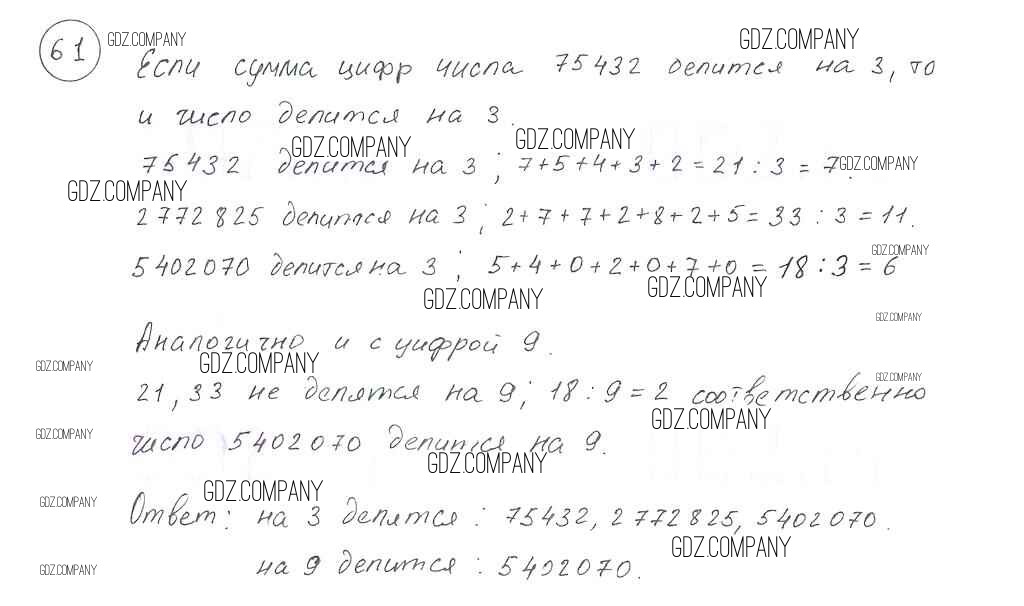 61 GDZ.COMPANY GDZ.COMPANY
Если сумма цифр числа 75432 делится на 3, то
и число делится на 3.
GDZ.COMPANY GDZ.COMPANY
75432 делится на 3; 7+5+4+3+2=21:3=7. GDZ.COMPANY
GDZ.COMPANY
2772825 делится на 3; 2+7+7+2+8+2+5=33:3=11.
GDZ.COMPANY
5402070 делится на 3; 5+4+0+2+0+7+0=18:3=6
GDZ.COMPANY GDZ.COMPANY
GDZ.COMPANY
Аналогично и с цифрой 9.
GDZ.COMPANY GDZ.COMPANY
GDZ.COMPANY
21, 33 не делятся на 9; 18:9=2 соответственно
GDZ.COMPANY
GDZ.COMPANY
число 5402070 делится на 9.
GDZ.COMPANY
GDZ.COMPANY GDZ.COMPANY
Ответ: на 3 делятся: 75432, 2772825, 5402070.
GDZ.COMPANY
GDZ.COMPANY
на 9 делится: 5402070.